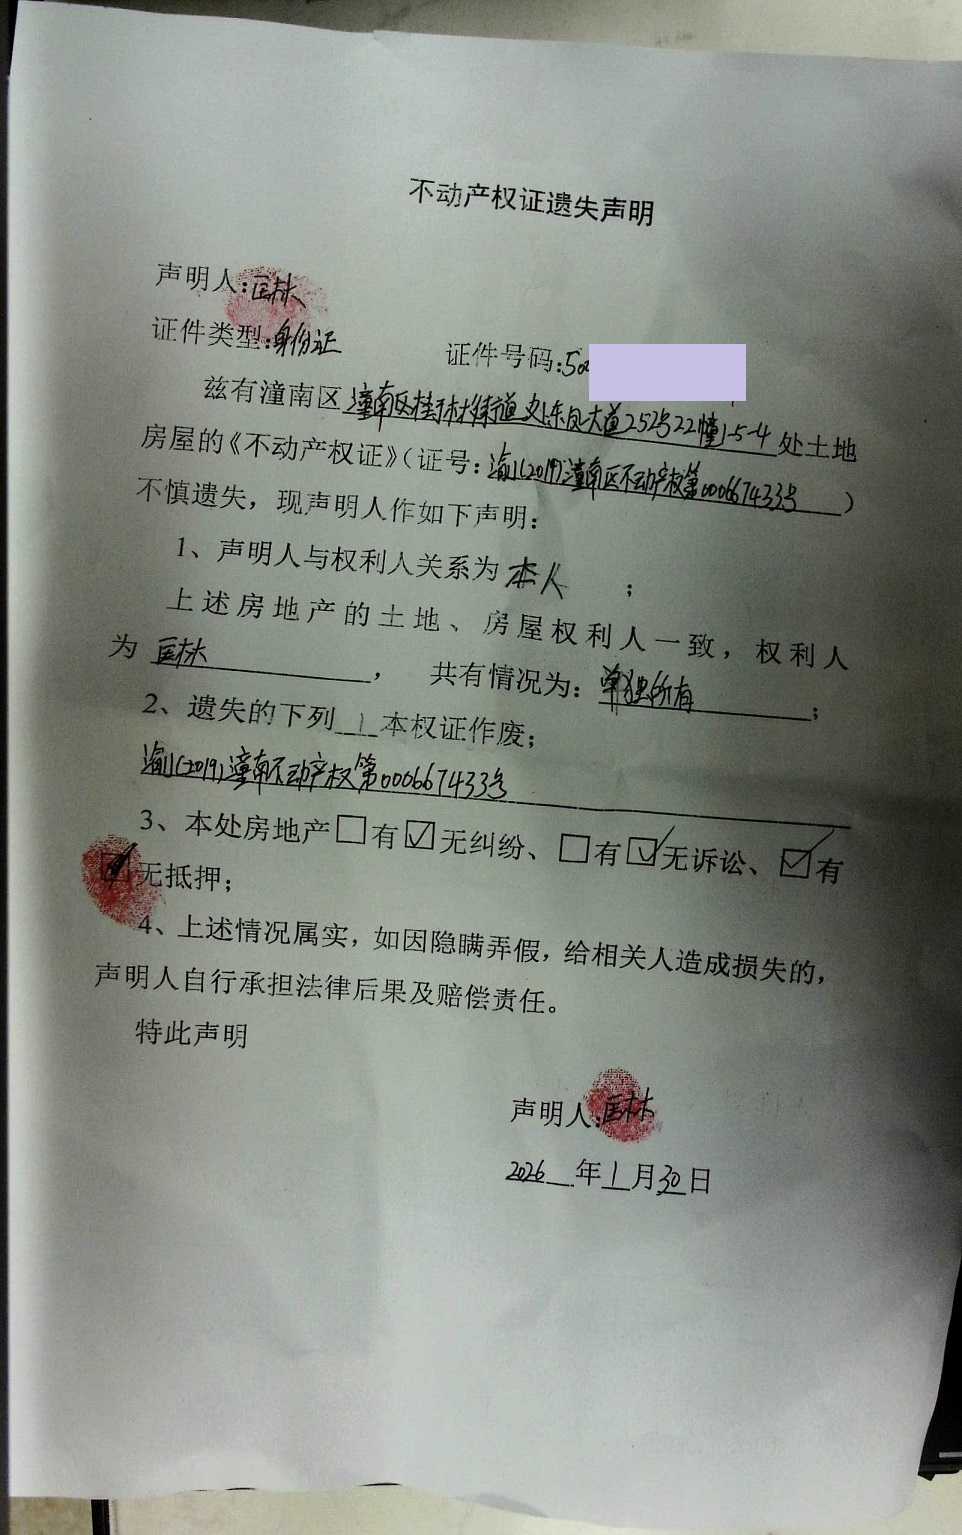 不动产权证遗失声明
声明人:匡林
证件类型:身份证 证件号码:500
兹有潼南区潼南区桂林街道办东风大道252号22幢1-5-4处土地
房屋的《不动产权证》(证号:渝(2019)潼南区不动产权第000667433号)
不慎遗失,现声明人作如下声明:
1、声明人与权利人关系为本人;
上述房地产的土地、房屋权利人一致,权利人
为匡林,共有情况为:单独所有;
2、遗失的下列1本权证作废;
渝(2019)潼南不动产权第000667433号
3、本处房地产□有☑无纠纷、□有☑无诉讼、☑有
无抵押;
4、上述情况属实,如因隐瞒弄假,给相关人造成损失的,
声明人自行承担法律后果及赔偿责任。
特此声明
声明人:匡林
2026年1月30日